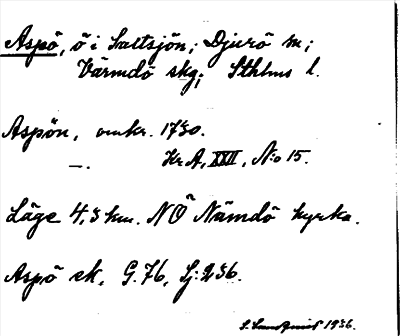 Aspö, ö i Saltsjön; Djurö sn;
Värmdö skg; Sthlms l.
Aspön, omkr. 1730.
—. Kr A, XXII, N:o 15.
Läge 4,3 km. NÖ Nämdö kyrka.
Aspö sk. G. 76, Sj: 236.
S. Lundquist 1936.